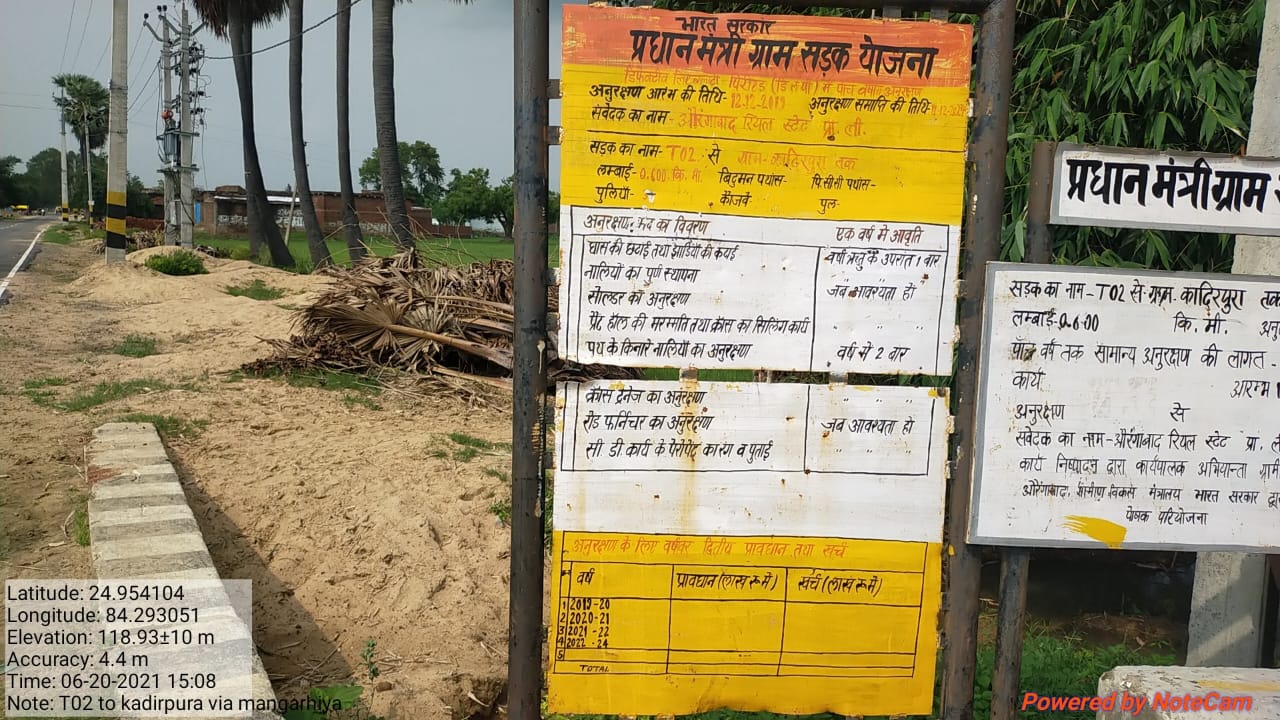 भारत सरकार
प्रधान मंत्री ग्राम सड़क योजना
में पांच वर्षीय अनुरक्षण
अनुरक्षण आरंभ की तिथि- 12.12-2019 अनुरक्षण समाप्ति की तिथि-
संवेदक का नाम- औरंगाबाद रियल स्टेट प्रा. ली.
सड़क का नाम- T02 से ग्राम- कादिरपुरा तक
लम्बाई- 0.600 कि. मी. बिटुमन पथांस- पि.सी.सी पथांस-
पुलिया- कॉजवे पुल-
अनुरक्षण मद का विवरण एक वर्ष में आवृति
घास की छटाई तथा झाड़ियों की कटाई वर्षा ऋतु के उपरांत 1 बार
नालियों का पुर्ण स्थापना जब आवश्यता हो
सोल्डर का अनुरक्षण " " "
पॉट होल की मरम्मति तथा क्रैक्स का सिलिंग कार्य " " "
पथ के किनारे नालियों का अनुरक्षण वर्ष में 2 बार
क्रॉस ड्रेनेज का अनुरक्षण " " "
रोड फर्निचर का अनुरक्षण जब आवश्यता हो
सी डी कार्य के पैरापेट का रंग व पुताई " "
अनुरक्षण के लिए वर्षवार वित्तिय प्रावधान तथा खर्च
वर्ष प्रावधान (लाख रू में) खर्च (लाख रू में)
1 2019-20
2 2020-21
3 2021-22
4 2022-24
5
TOTAL
प्रधान मंत्री ग्राम
सड़क का नाम-T02 से ग्राम कादिरपुरा तक
लम्बाई-0.600 कि. मी.
पाँच वर्ष तक सामान्य अनुरक्षण की लागत -
कार्य आरम्भ
अनुरक्षण से
संवेदक का नाम-औरंगाबाद रियल स्टेट प्रा.
कार्य निष्पादन द्वारा कार्यपालक अभियान्ता
औरंगाबाद, ग्रामीण विकास मंत्रालय भारत सरकार
पोषक परियोजना
Latitude: 24.954104
Longitude: 84.293051
Elevation: 118.93±10 m
Accuracy: 4.4 m
Time: 06-20-2021 15:08
Note: T02 to kadirpura via mangarhiya
Powered by NoteCam